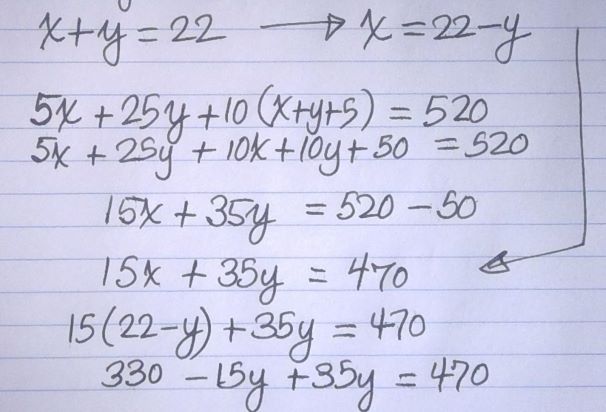 x+y=22 → x=22-y
5x+25y+10(x+y+5)=520
5x+25y+10x+10y+50=520
15x+35y=520-50
15x+35y=470
15(22-y)+35y=470
330-15y+35y=470